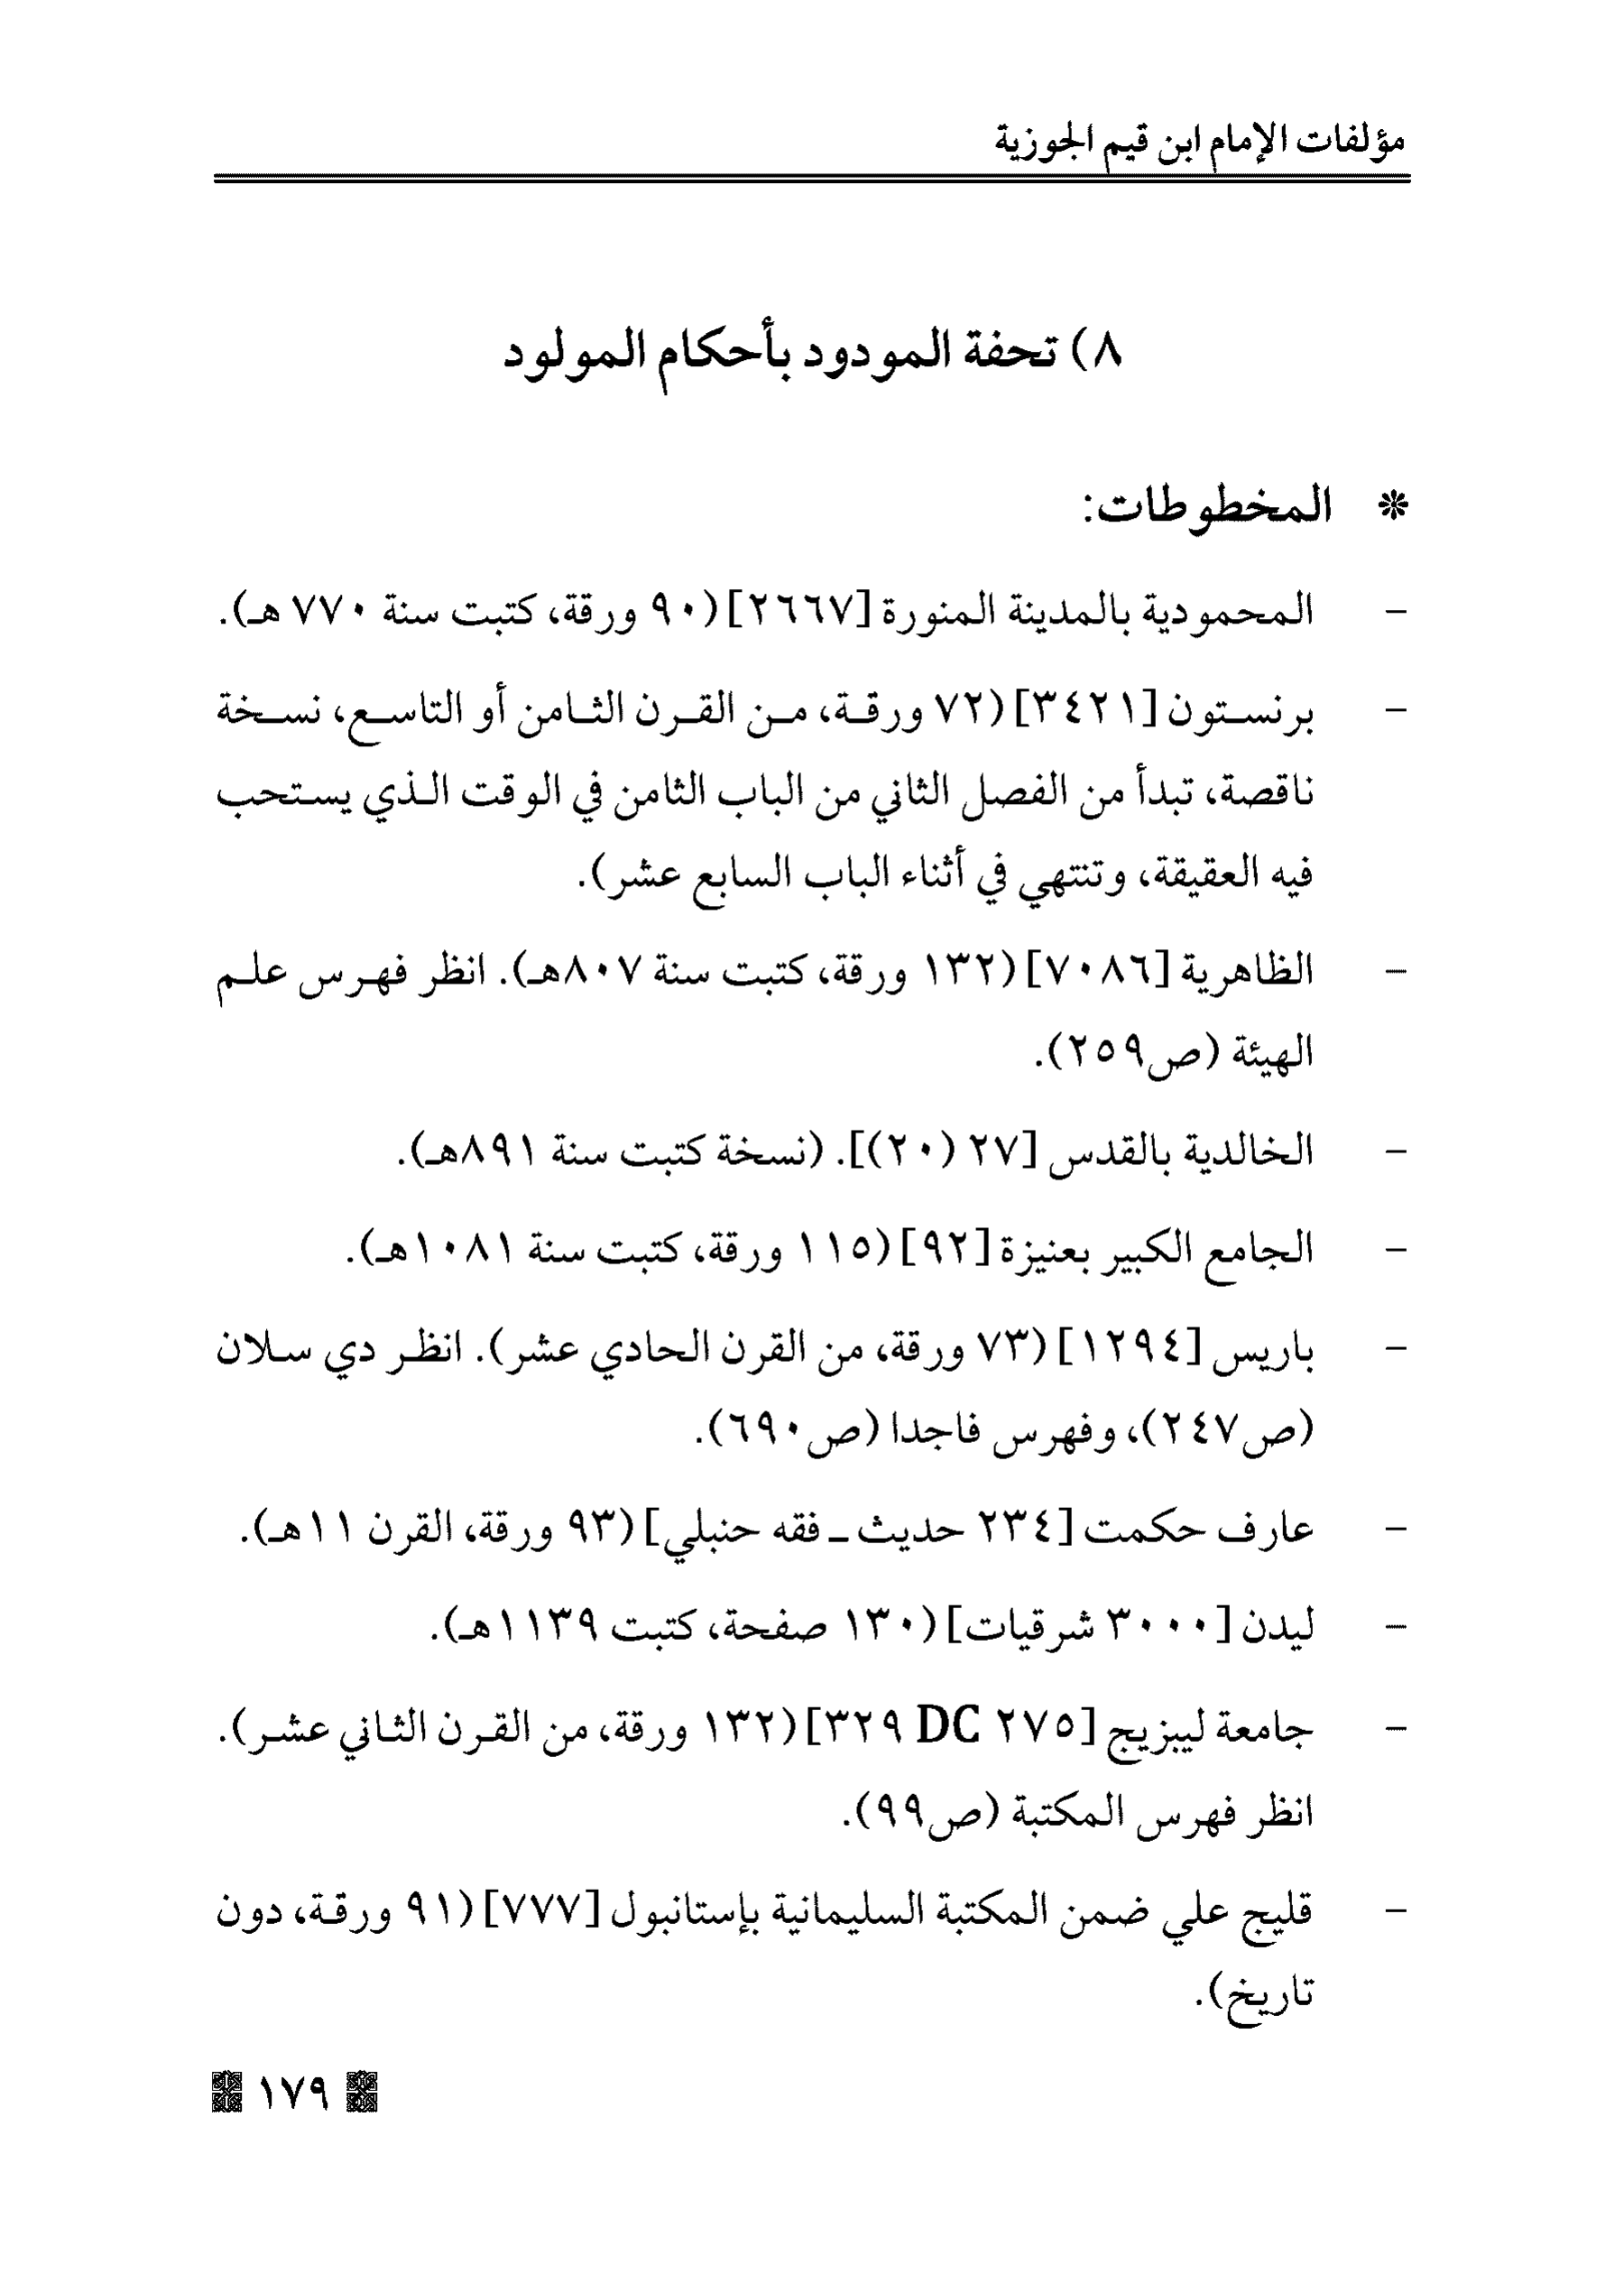 مؤلفات الإمام ابن قيم الجوزية
٨) تحفة المودود بأحكام المولود
* المخطوطات:
- المحمودية بالمدينة المنورة [٢٦٦٧] (٩٠ ورقة، كتبت سنة ٧٧٠ هـ).
- برنستون [٣٤٢١] (٧٢ ورقة، من القرن الثامن أو التاسع، نسخة
ناقصة، تبدأ من الفصل الثاني من الباب الثامن في الوقت الذي يستحب
فيه العقيقة، وتنتهي في أثناء الباب السابع عشر).
- الظاهرية [٧٠٨٦] (١٣٢ ورقة، كتبت سنة ٨٠٧هـ). انظر فهرس علم
الهيئة (ص٢٥٩).
- الخالدية بالقدس [٢٧ (٢٠)]. (نسخة كتبت سنة ٨٩١هـ).
- الجامع الكبير بعنيزة [٩٢] (١١٥ ورقة، كتبت سنة ١٠٨١هـ).
- باريس [١٢٩٤] (٧٣ ورقة، من القرن الحادي عشر). انظر دي سلان
(ص٢٤٧)، وفهرس فاجدا (ص٦٩٠).
- عارف حكمت [٢٣٤ حديث ـ فقه حنبلي] (٩٣ ورقة، القرن ١١هـ).
- ليدن [٣٠٠٠ شرقيات] (١٣٠ صفحة، كتبت ١١٣٩هـ).
- جامعة ليبزيج [٢٧٥ DC ٣٢٩] (١٣٢ ورقة، من القرن الثاني عشر).
انظر فهرس المكتبة (ص٩٩).
- قليج علي ضمن المكتبة السليمانية بإستانبول [٧٧٧] (٩١ ورقة، دون
تاريخ).
١٧٩